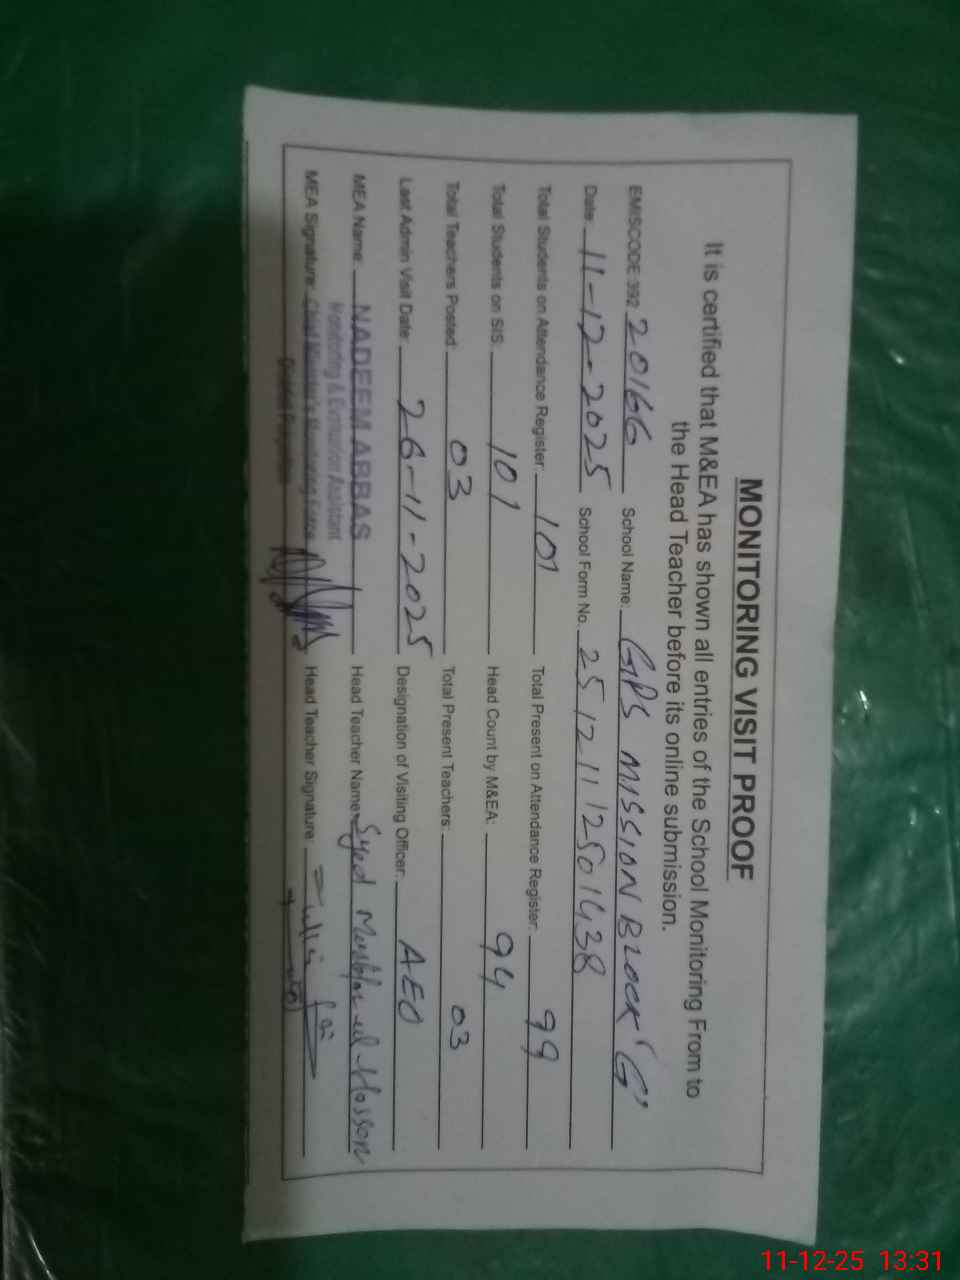 MONITORING VISIT PROOF
It is certified that M&EA has shown all entries of the School Monitoring From to
the Head Teacher before its online submission.
EMISCODE 392 20166 School Name: GPS MISSION BLOCK 'G'
Date 11-12-2025 School Form No. 25121112501438
Total Students on Attendance Register: 101 Total Present on Attendance Register: 99
Total Students on SIS: 101 Head Count by M&EA: 94
Total Teachers Posted: 03 Total Present Teachers: 03
Last Admin Visit Date: 26-11-2025 Designation of Visiting Officer: AEO
MEA Name: NADEEM ABBAS Head Teacher Name: Syed
Monitoring & Evaluation Assistant
MEA Signature: Chief Minister's Monitoring Force Head Teacher Signature:
11-12-25 13:31